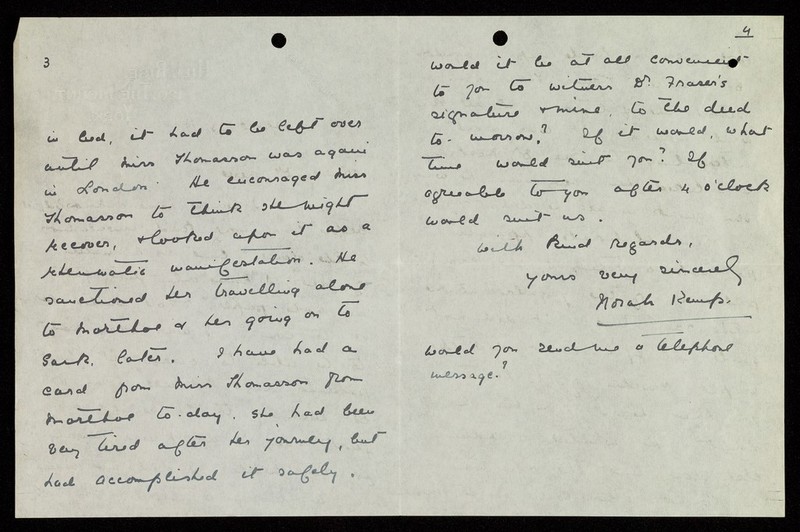 3
in bed, it had to be left over
until Miss Thomasson was again
in London. He encouraged Miss
Thomasson to think she might
recover, & looked upon it as a
rheumatic manifestation. He
sanctioned her travelling alone
to Morthoe & her going on to
Sark, later. I have had a
card from Miss Thomasson from
Morthoe to-day. She had been
very tired after her journey, but
had accomplished it safely.
4
would it be at all convenient
to you to witness Dr. Fraser's
signature & mine, to the deed
to-morrow? If it would, what
time would suit you? If
agreeable to you after 4 o'clock
would suit us.
With kind regards,
yours very sincerely
Norah Kemp.
would you send me a telephone
message?